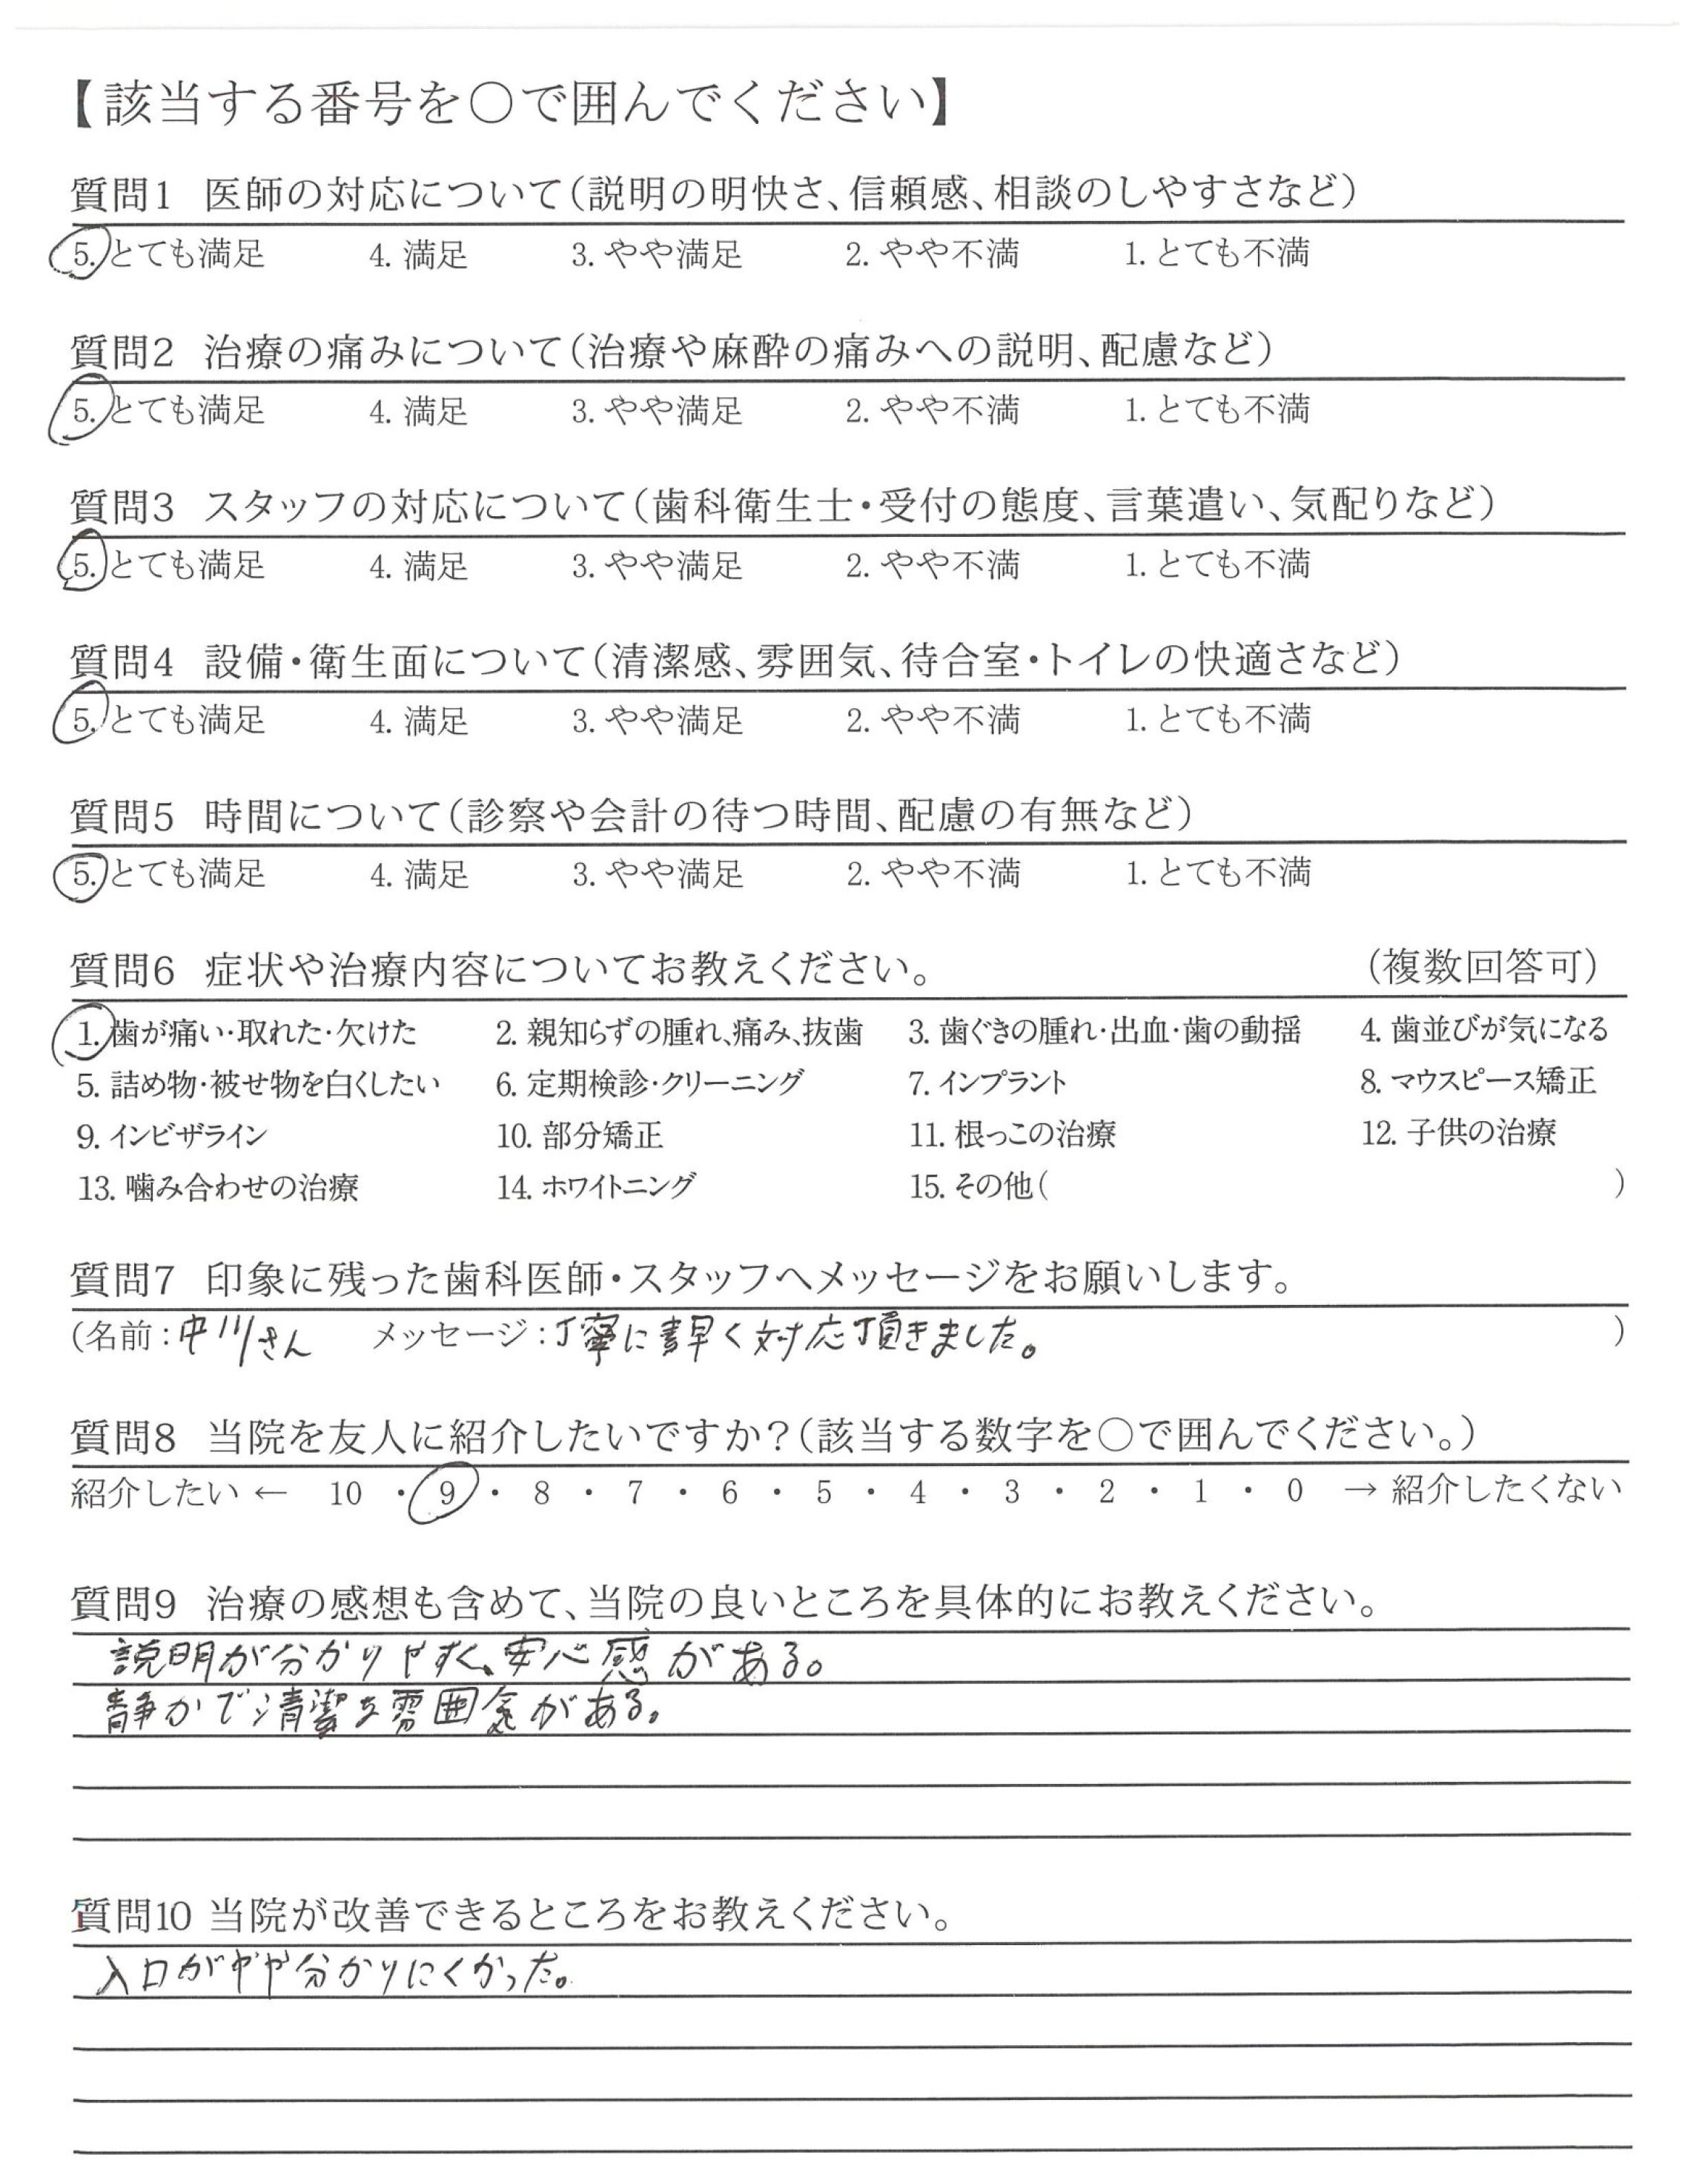 【該当する番号を○で囲んでください】
質問1 医師の対応について（説明の明快さ、信頼感、相談のしやすさなど）
5. とても満足 4. 満足 3. やや満足 2. やや不満 1. とても不満
質問2 治療の痛みについて（治療や麻酔の痛みへの説明、配慮など）
5. とても満足 4. 満足 3. やや満足 2. やや不満 1. とても不満
質問3 スタッフの対応について（歯科衛生士・受付の態度、言葉遣い、気配りなど）
5. とても満足 4. 満足 3. やや満足 2. やや不満 1. とても不満
質問4 設備・衛生面について（清潔感、雰囲気、待合室・トイレの快適さなど）
5. とても満足 4. 満足 3. やや満足 2. やや不満 1. とても不満
質問5 時間について（診察や会計の待つ時間、配慮の有無など）
5. とても満足 4. 満足 3. やや満足 2. やや不満 1. とても不満
質問6 症状や治療内容についてお教えください。 （複数回答可）
1. 歯が痛い・取れた・欠けた 2. 親知らずの腫れ、痛み、抜歯 3. 歯ぐきの腫れ・出血・歯の動揺 4. 歯並びが気になる
5. 詰め物・被せ物を白くしたい 6. 定期検診・クリーニング 7. インプラント 8. マウスピース矯正
9. インビザライン 10. 部分矯正 11. 根っこの治療 12. 子供の治療
13. 噛み合わせの治療 14. ホワイトニング 15. その他（ ）
質問7 印象に残った歯科医師・スタッフへメッセージをお願いします。
（名前：中川さん メッセージ：丁寧に素早く対応頂きました。 ）
質問8 当院を友人に紹介したいですか？（該当する数字を○で囲んでください。）
紹介したい ← 10 ・ 9 ・ 8 ・ 7 ・ 6 ・ 5 ・ 4 ・ 3 ・ 2 ・ 1 ・ 0 → 紹介したくない
質問9 治療の感想も含めて、当院の良いところを具体的にお教えください。
説明が分かりやすく、安心感がある。
静かで清潔な雰囲気がある。
質問10 当院が改善できるところをお教えください。
入口がやや分かりにくかった。